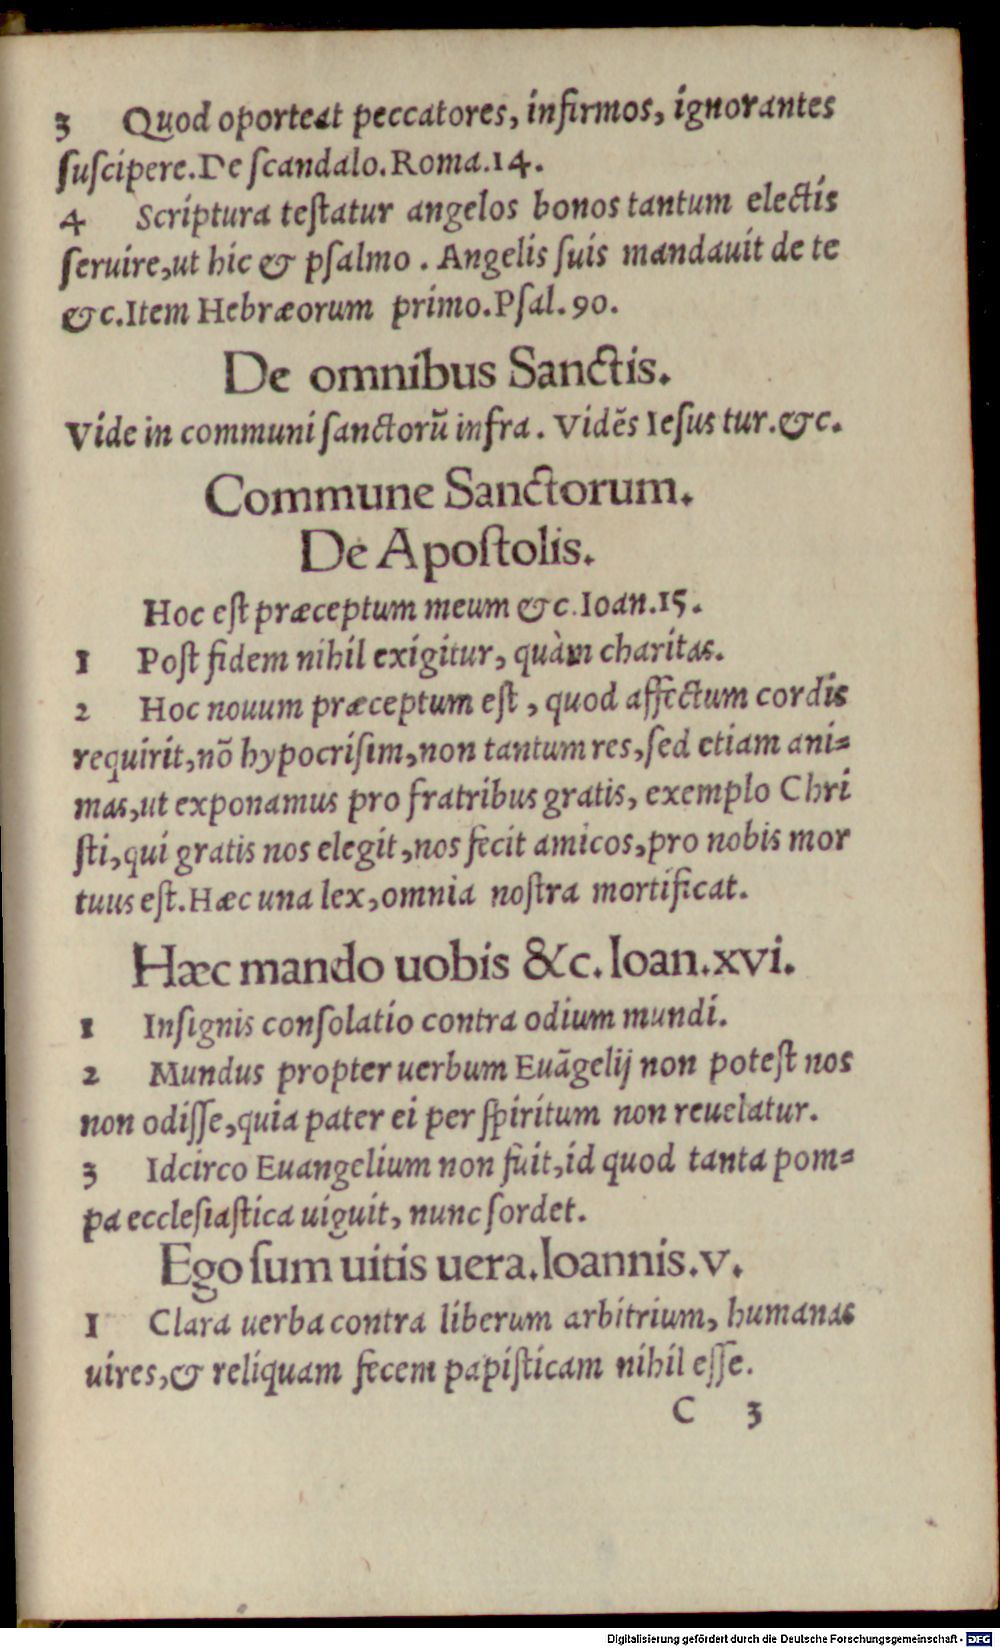 3 Quod oporteat peccatores, infirmos, ignorantes
ſuſcipere. De ſcandalo. Roma. 14.
4 Scriptura teſtatur angelos bonos tantum electis
ſeruire, ut hic & pſalmo. Angelis ſuis mandauit de te
&c. Item Hebræorum primo. Pſal. 90.
De omnibus Sanctis.
Vide in communi ſanctorū infra. Vidēs Ieſus tur. &c.
Commune Sanctorum.
De Apoſtolis.
Hoc eſt præceptum meum &c. Ioan. 15.
1 Poſt fidem nihil exigitur, quàm charitas.
2 Hoc nouum præceptum eſt, quod affectum cordis
requirit, nō hypocriſim, non tantum res, ſed etiam ani⸗
mas, ut exponamus pro fratribus gratis, exemplo Chri
ſti, qui gratis nos elegit, nos fecit amicos, pro nobis mor
tuus eſt. Hæc una lex, omnia noſtra mortificat.
Hæc mando uobis &c. Ioan. xvi.
1 Inſignis conſolatio contra odium mundi.
2 Mundus propter uerbum Euāgelij non poteſt nos
non odiſſe, quia pater ei per ſpiritum non reuelatur.
3 Idcirco Euangelium non fuit, id quod tanta pom⸗
pa eccleſiaſtica uiguit, nunc ſordet.
Ego ſum uitis uera. Ioannis. v.
1 Clara uerba contra liberum arbitrium, humanas
uires, & reliquam fecem papiſticam nihil eſſe.
C 3
Digitalisierung gefördert durch die Deutsche Forschungsgemeinschaft - DFG